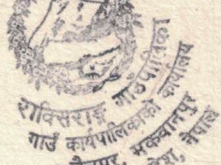 राक्सिराङ्ग गाउँपालिका
गाउँ कार्यपालिकाको कार्यालय
मकवानपुर
नेपाल